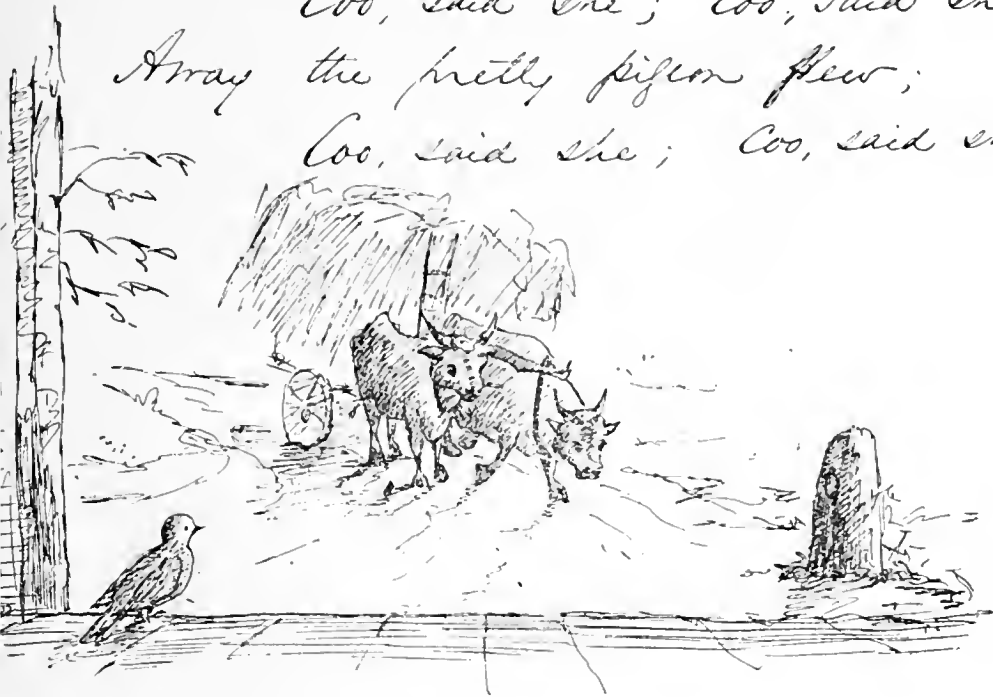 Coo, said she; Coo, said sh
Away the pretty pigeon flew;
Coo, said she; Coo, said s